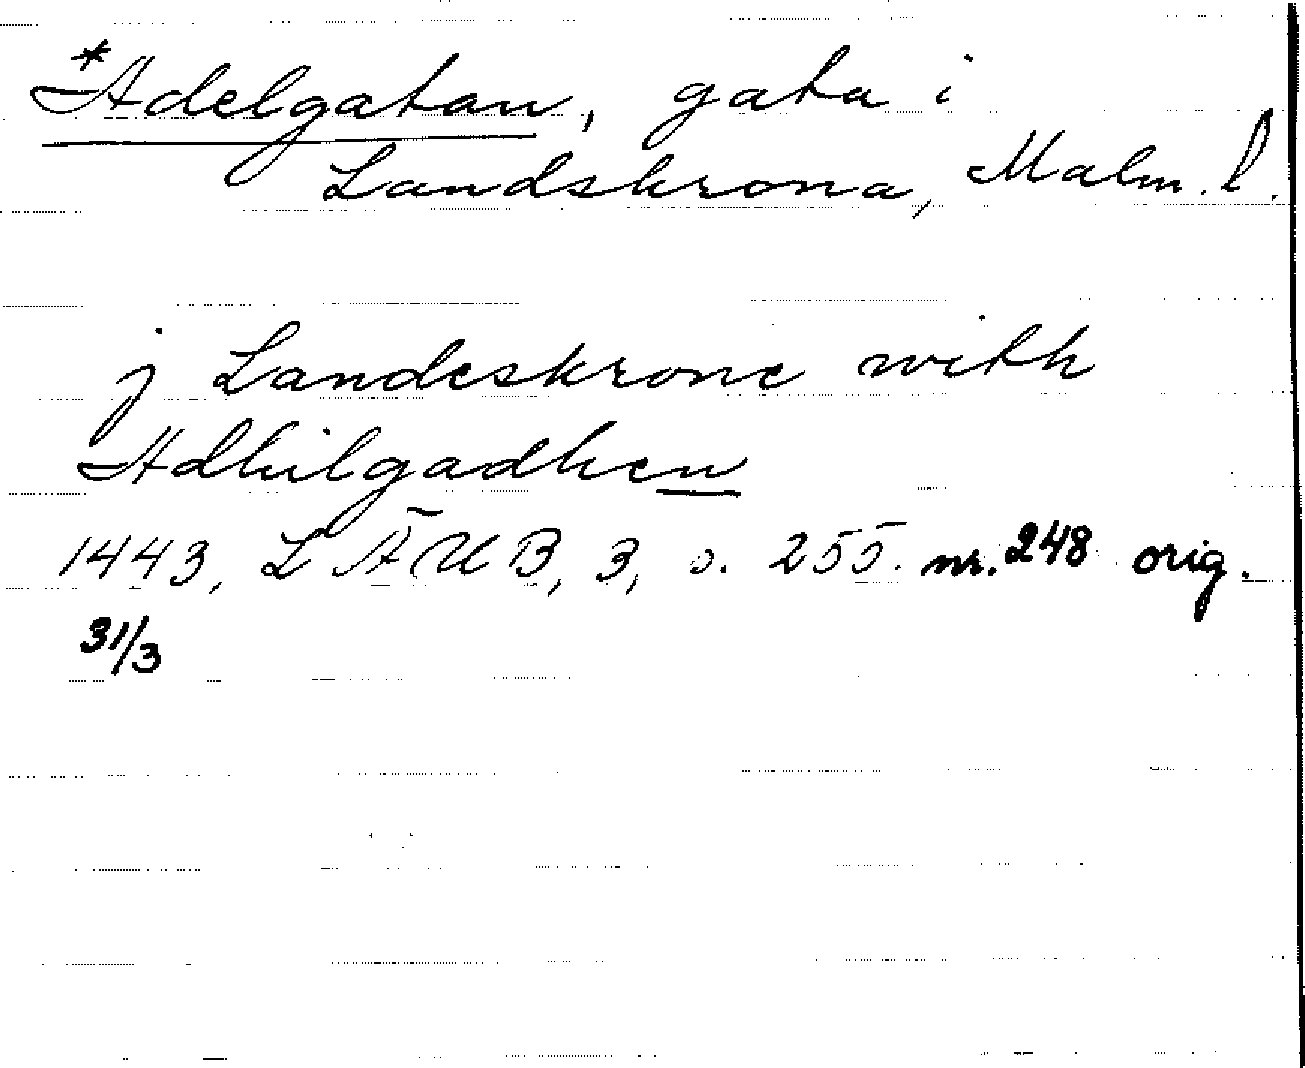 *Adelgatan, gata i
Landskrona, Malm. l.
j Landeskrone with
Adhilgadhen
1443, LÄUB, 3, s. 255. nr. 248 orig.
31/3